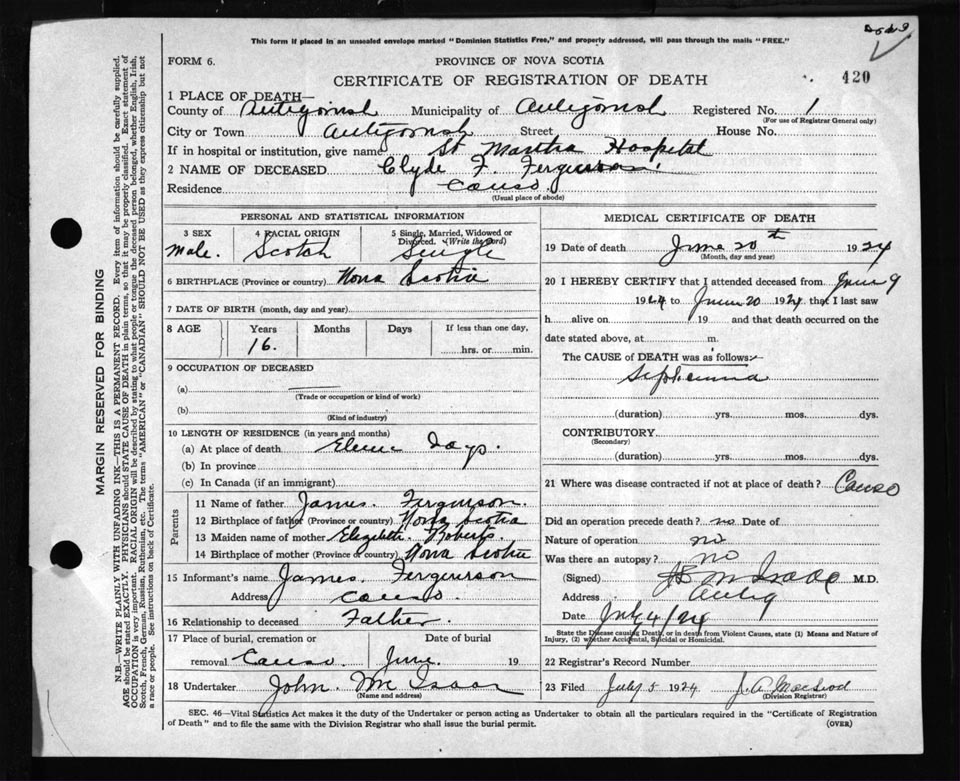 2549
This form if placed in an unsealed envelope marked "Dominion Statistics Free," and properly addressed, will pass through the mails "FREE."
FORM 6.
PROVINCE OF NOVA SCOTIA
CERTIFICATE OF REGISTRATION OF DEATH
420
1 PLACE OF DEATH—
County of Antigonish Municipality of Antigonish Registered No. 1
(For use of Registrar General only)
City or Town Antigonish Street House No.
If in hospital or institution, give name St Martha Hospital
2 NAME OF DECEASED Clyde F. Fergusson
Residence Canso
(Usual place of abode)
PERSONAL AND STATISTICAL INFORMATION
3 SEX 4 RACIAL ORIGIN 5 Single, Married, Widowed or Divorced. (Write the word)
Male. Scotch Single
6 BIRTHPLACE (Province or country) Nova Scotia
7 DATE OF BIRTH (month, day and year)
8 AGE Years Months Days If less than one day,
16. hrs. or min.
9 OCCUPATION OF DECEASED
(a)
(Trade or occupation or kind of work)
(b)
(Kind of industry)
10 LENGTH OF RESIDENCE (in years and months)
(a) At place of death Eleven Days.
(b) In province
(c) In Canada (if an immigrant)
Parents
11 Name of father James. Fergusson.
12 Birthplace of father (Province or country) Nova Scotia
13 Maiden name of mother Elizabeth. Roberts.
14 Birthplace of mother (Province or country) Nova Scotia
15 Informant's name James. Fergusson
Address Canso.
16 Relationship to deceased Father.
17 Place of burial, cremation or Date of burial
removal Canso. June. 19
18 Undertaker John. McIsaac
(Name and address)
MEDICAL CERTIFICATE OF DEATH
19 Date of death June 20th 1924
(Month, day and year)
20 I HEREBY CERTIFY that I attended deceased from June 9
1924 to June 20 1924 that I last saw
h alive on 19 and that death occurred on
date stated above, at m.
The CAUSE of DEATH was as follows:—
Septicemia
(duration) yrs. mos. dys.
CONTRIBUTORY
(Secondary)
(duration) yrs. mos. dys.
21 Where was disease contracted if not at place of death? Canso
Did an operation precede death? no Date of
Nature of operation no
Was there an autopsy? no
(Signed) McIsaac M.D.
Address Antig
Date July 4/24
State the Disease causing Death, or in death from Violent Causes, state (1) Means and Nature of
Injury, (2) whether Accidental, Suicidal or Homicidal.
22 Registrar's Record Number
23 Filed July 5 1924 J. A. MacLeod
(Division Registrar)
SEC. 46—Vital Statistics Act makes it the duty of the Undertaker or person acting as Undertaker to obtain all the particulars required in the "Certificate of Registration
of Death" and to file the same with the Division Registrar who shall issue the burial permit.
(OVER)
MARGIN RESERVED FOR BINDING
N.B.—WRITE PLAINLY WITH UNFADING INK—THIS IS A PERMANENT RECORD. Every item of information should be carefully supplied.
AGE should be stated EXACTLY. PHYSICIANS should STATE CAUSE OF DEATH in plain terms, so that it may be properly classified. Exact statement of
OCCUPATION is very important. RACIAL ORIGIN will be described by stating to what people or tongue the deceased person belonged, whether English, Irish,
Scotch, French, German, Russian, Ruthenian, etc. The terms "AMERICAN" or "CANADIAN" SHOULD NOT BE USED as they express citizenship but not
a race or people. See instructions on back of Certificate.